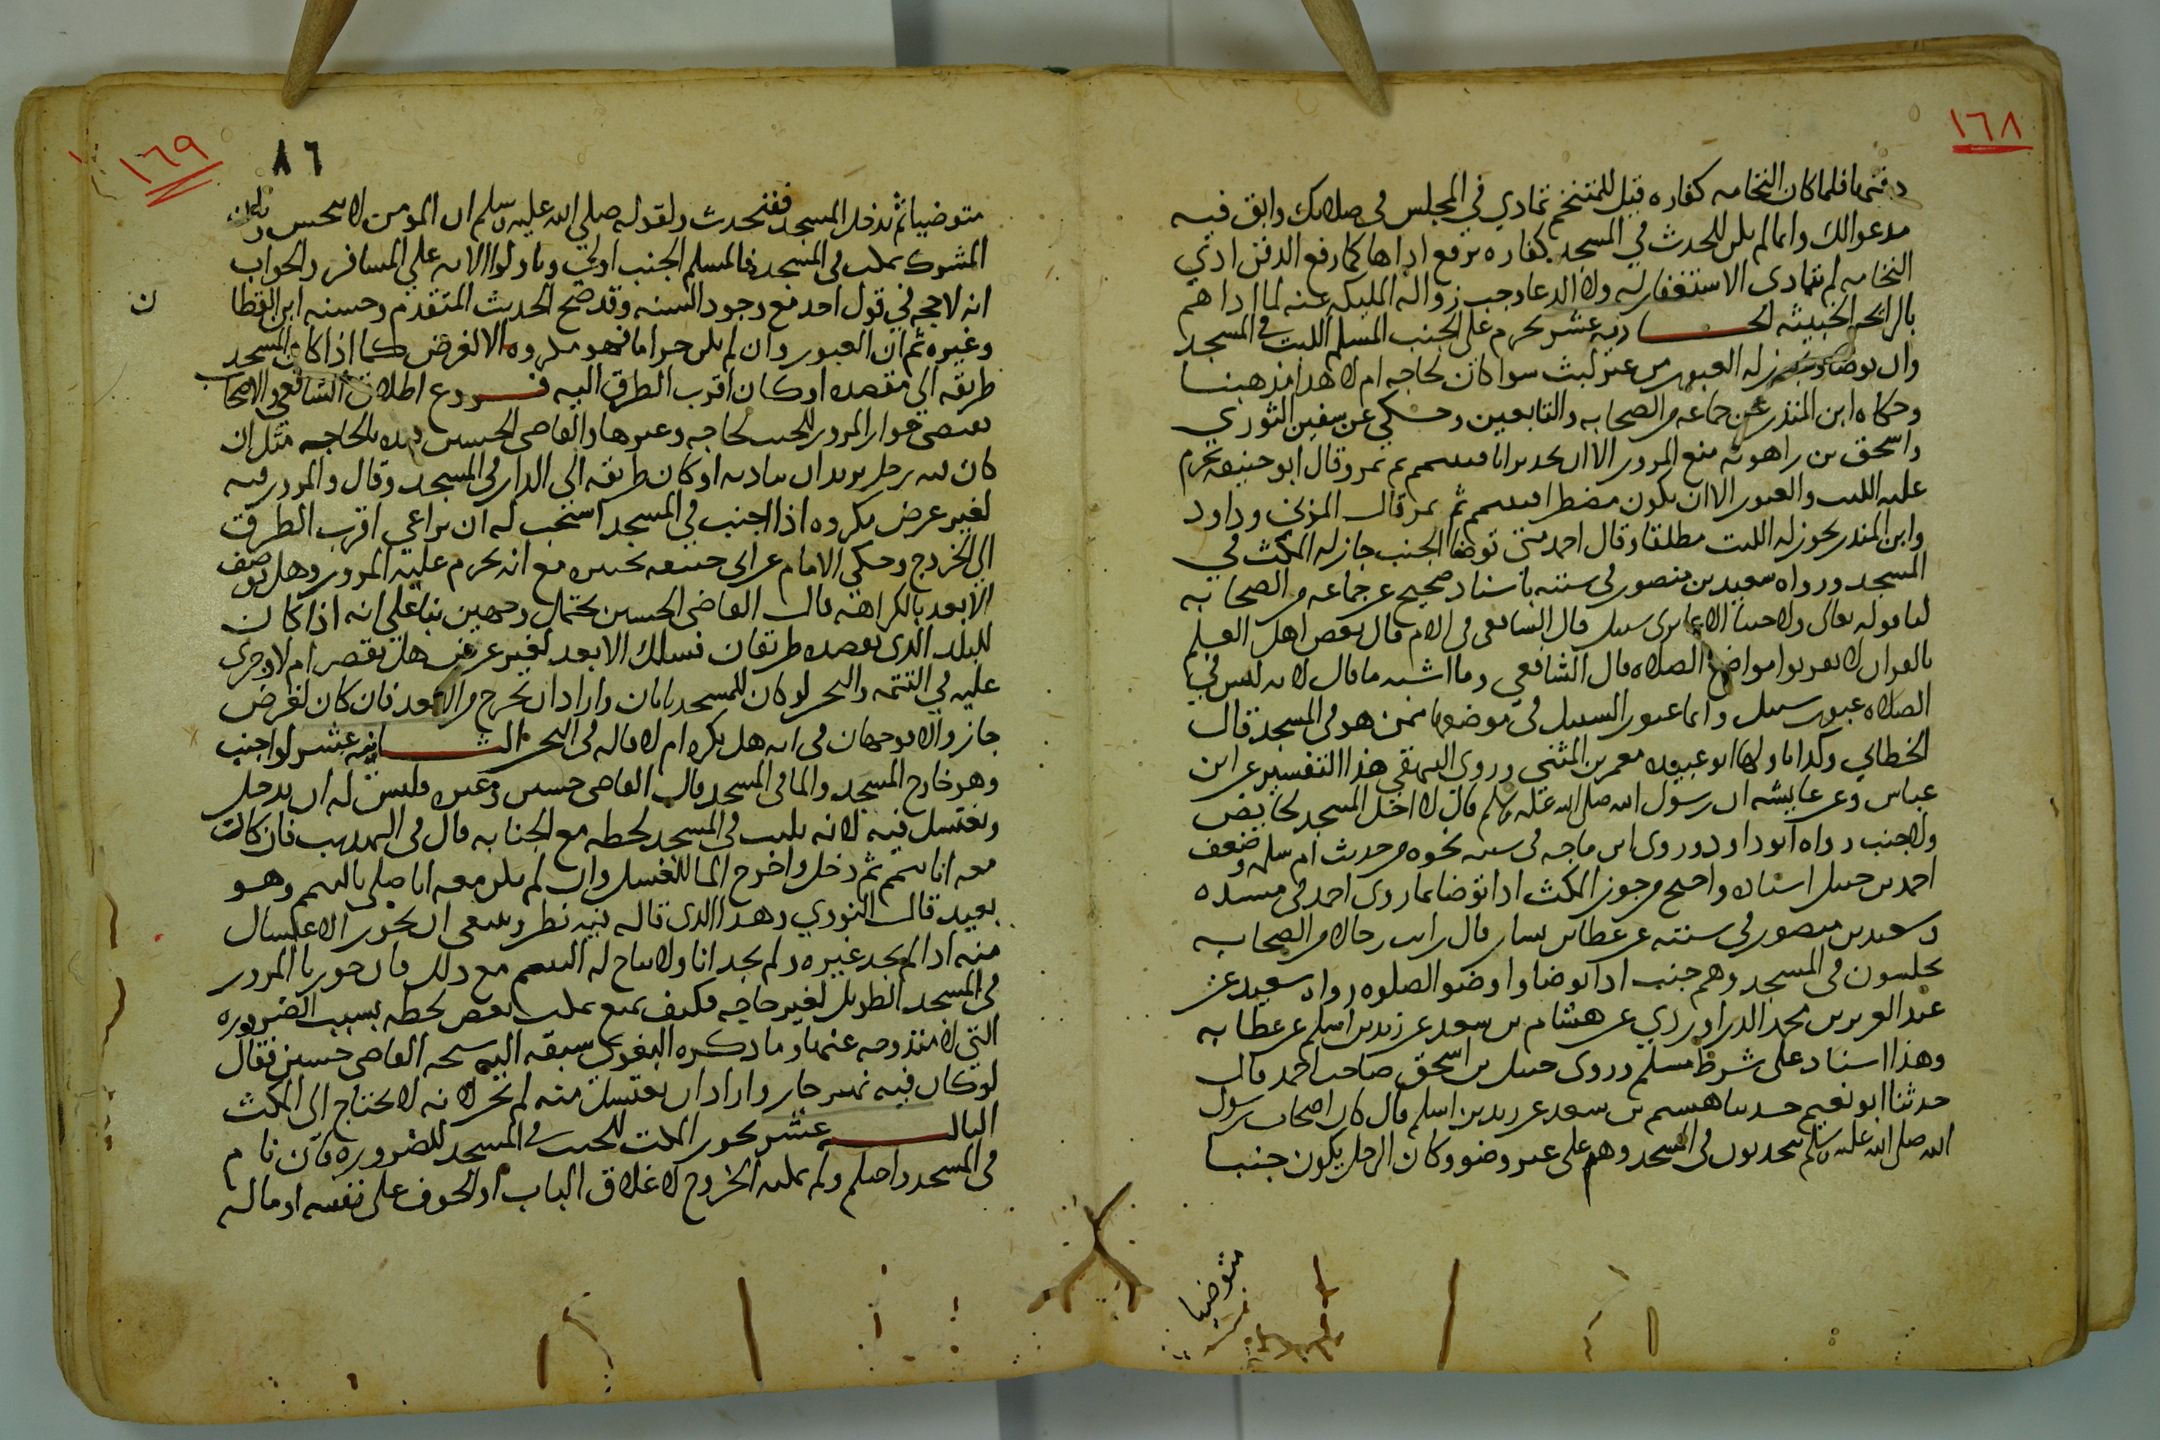 ١٦٨
دفنها فلما كان النخامه كفاره قيل للمتنخم تمادي في المجلس في صلاتك وابق فيه
مدعوا لك ولما لم يكن للحدث في المسجد كفاره ترفع اذاها كما رفع الدفن اذي
النخامه لم يتمادى الاستغفار له ولا الدعا وجب زواله المليكه عنه لما اذاهم
بالرائحه الخبيثه الحاديه عشر يحرم على الجنب المسلم اللبث في المسجد
وان توضا ويجوز له العبور من غير لبث سوا كان لحاجه ام لا هذا مذهبنا
وحكاه ابن المنذر عن جماعه من الصحابه والتابعين وحكي عن سفين الثوري
واسحق بن راهويه منع المرور الا ان لا يجد بدا فيتيمم ثم يمر وقال ابو حنيفه يحرم
عليه اللبث والعبور الا ان يكون مضطرا فيتيمم ثم يمر قال المزني وداود
وابن المنذر يجوز له اللبث مطلقا وقال احمد متى توضا الجنب جاز له المكث في
المسجد ورواه سعيد بن منصور في سننه باسناد صحيح عن جماعه من الصحابه
لنا قوله تعالى ولا جنبا الا عابرى سبيل قال الشافعي في الام قال بعض اهل العلم
بالقران لا تقربوا مواضع الصلاه قال الشافعي وما اشبه ما قال لانه ليس في
الصلاه عبور سبيل وانما عبور السبيل في موضعها ممن هو في المسجد قال
الخطابي وكذا تاولها ابو عبيده معمر بن المثنى وروى البيهقي هذا التفسير عن ابن
عباس وعن عايشه ان رسول الله صلى الله عليه وسلم قال لا احل المسجد لحايض
ولا جنب رواه ابو داود وروى ابن ماجه في سننه نحوه من حديث ام سلمه وضعف
احمد بن حنبل اسناده واحتج من جوز المكث اذا توضا بما روى احمد في مسنده
وسعيد بن منصور في سننه عن عطا بن يسار قال رايت رجالا من الصحابه
يجلسون في المسجد وهم جنب اذا توضاوا وضو الصلوه رواه سعيد عن
عبد العزيز بن محمد الدراوردي عن هشام بن سعد عن زيد بن اسلم عن عطا به
وهذا اسناد على شرط مسلم وروى حنبل بن اسحق صاحب احمد قال
حدثنا ابو نعيم حدثنا هشام بن سعد عن زيد بن اسلم قال كان اصحاب رسول
الله صلى الله عليه وسلم يتحدثون في المسجد وهم على غير وضو وكان الرجل يكون جنبا
متوضيا
١٦٩
٨٦
متوضيا ثم يدخل المسجد فيتحدث ولقوله صلى الله عليه وسلم ان المومن لا ينجس ولان
المشرك يمكث في المسجد فالمسلم الجنب اولي وتاولوا الايه علي المسافر والجواب
انه لا حجه في قول احد مع وجود السنه وقد صح الحديث المتقدم وحسنه ابن القطان
وغيره ثم ان العبور وان لم يكن حراما فهو مكروه الا لغرض كما اذا كان المسجد
طريقه الى مقصده او كان اقرب الطرق اليه فروع اطلاق الشافعي والاصحاب
يقتضي جواز المرور للجنب لحاجه وغيرها والقاضي الحسين قيده بالحاجه مثل ان
كان فيه رجل يريد ان يناديه او كان طريقه الى الدار في المسجد وقال والمرور فيه
لغير غرض مكروه اذا اجنب في المسجد استحب له ان يراعي اقرب الطرق
الى الخروج وحكى الامام عن ابى حنيفه تخييره مع انه يحرم عليه المرور وهل يوصف
الابعد بالكراهه قال القاضي الحسين يحتمل وجهين بناعلي انه اذا كان
للبلد الذي يقصده طريقان فسلك الابعد لغير غرض هل يقصر ام لا وجرى
عليه في التتمه والبحر لو كان للمسجد بابان واراد ان يخرج من الابعد فان كان لغرض
جاز والا فوجهان في انه هل يكره ام لا قاله في البحر الثانيه عشر لو اجنب
وهو خارج المسجد والما في المسجد قال القاضي حسين وغيره فليس له ان يدخل
ويغتسل فيه لانه يلبث في المسجد لحظه مع الجنابه قال في التهذيب فان كان
معه انا تيمم ثم دخل واخرج الما للغسل وان لم يكن معه انا صلى بالتيمم وهو
بعيد قال النووي وهذا الذي قاله فيه نظر وينبغي ان يجوز الاغتسال
منه اذا لم يجد غيره ولم يجد انا ولا يباح له التيمم مع ذلك فانا جوزنا المرور
في المسجد الطويل لغير حاجه فكيف يمنع مكث بعض لحظه بسبب الضروره
التي لا مندوحه عنها وما ذكره البغوي سبقه اليه شيخه القاضي حسين فقال
لو كان فيه نهر جار واراد ان يغتسل منه لم يجز لانه لا يحتاج الى المكث
الثالثه عشر يجوز المكث للجنب في المسجد للضروره كان نام
في المسجد واحتلم ولم يمكنه الخروج لاغلاق الباب او لخوف على نفسه او ماله
ن